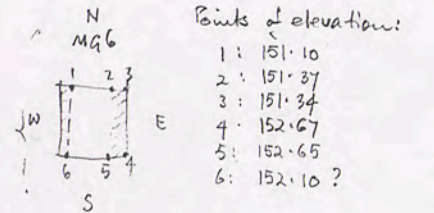 N
MG6
1 2 3
W E
6 5 4
S
Points of elevation:
1: 151.10
2: 151.37
3: 151.34
4. 152.67
5: 152.65
6: 152.10 ?